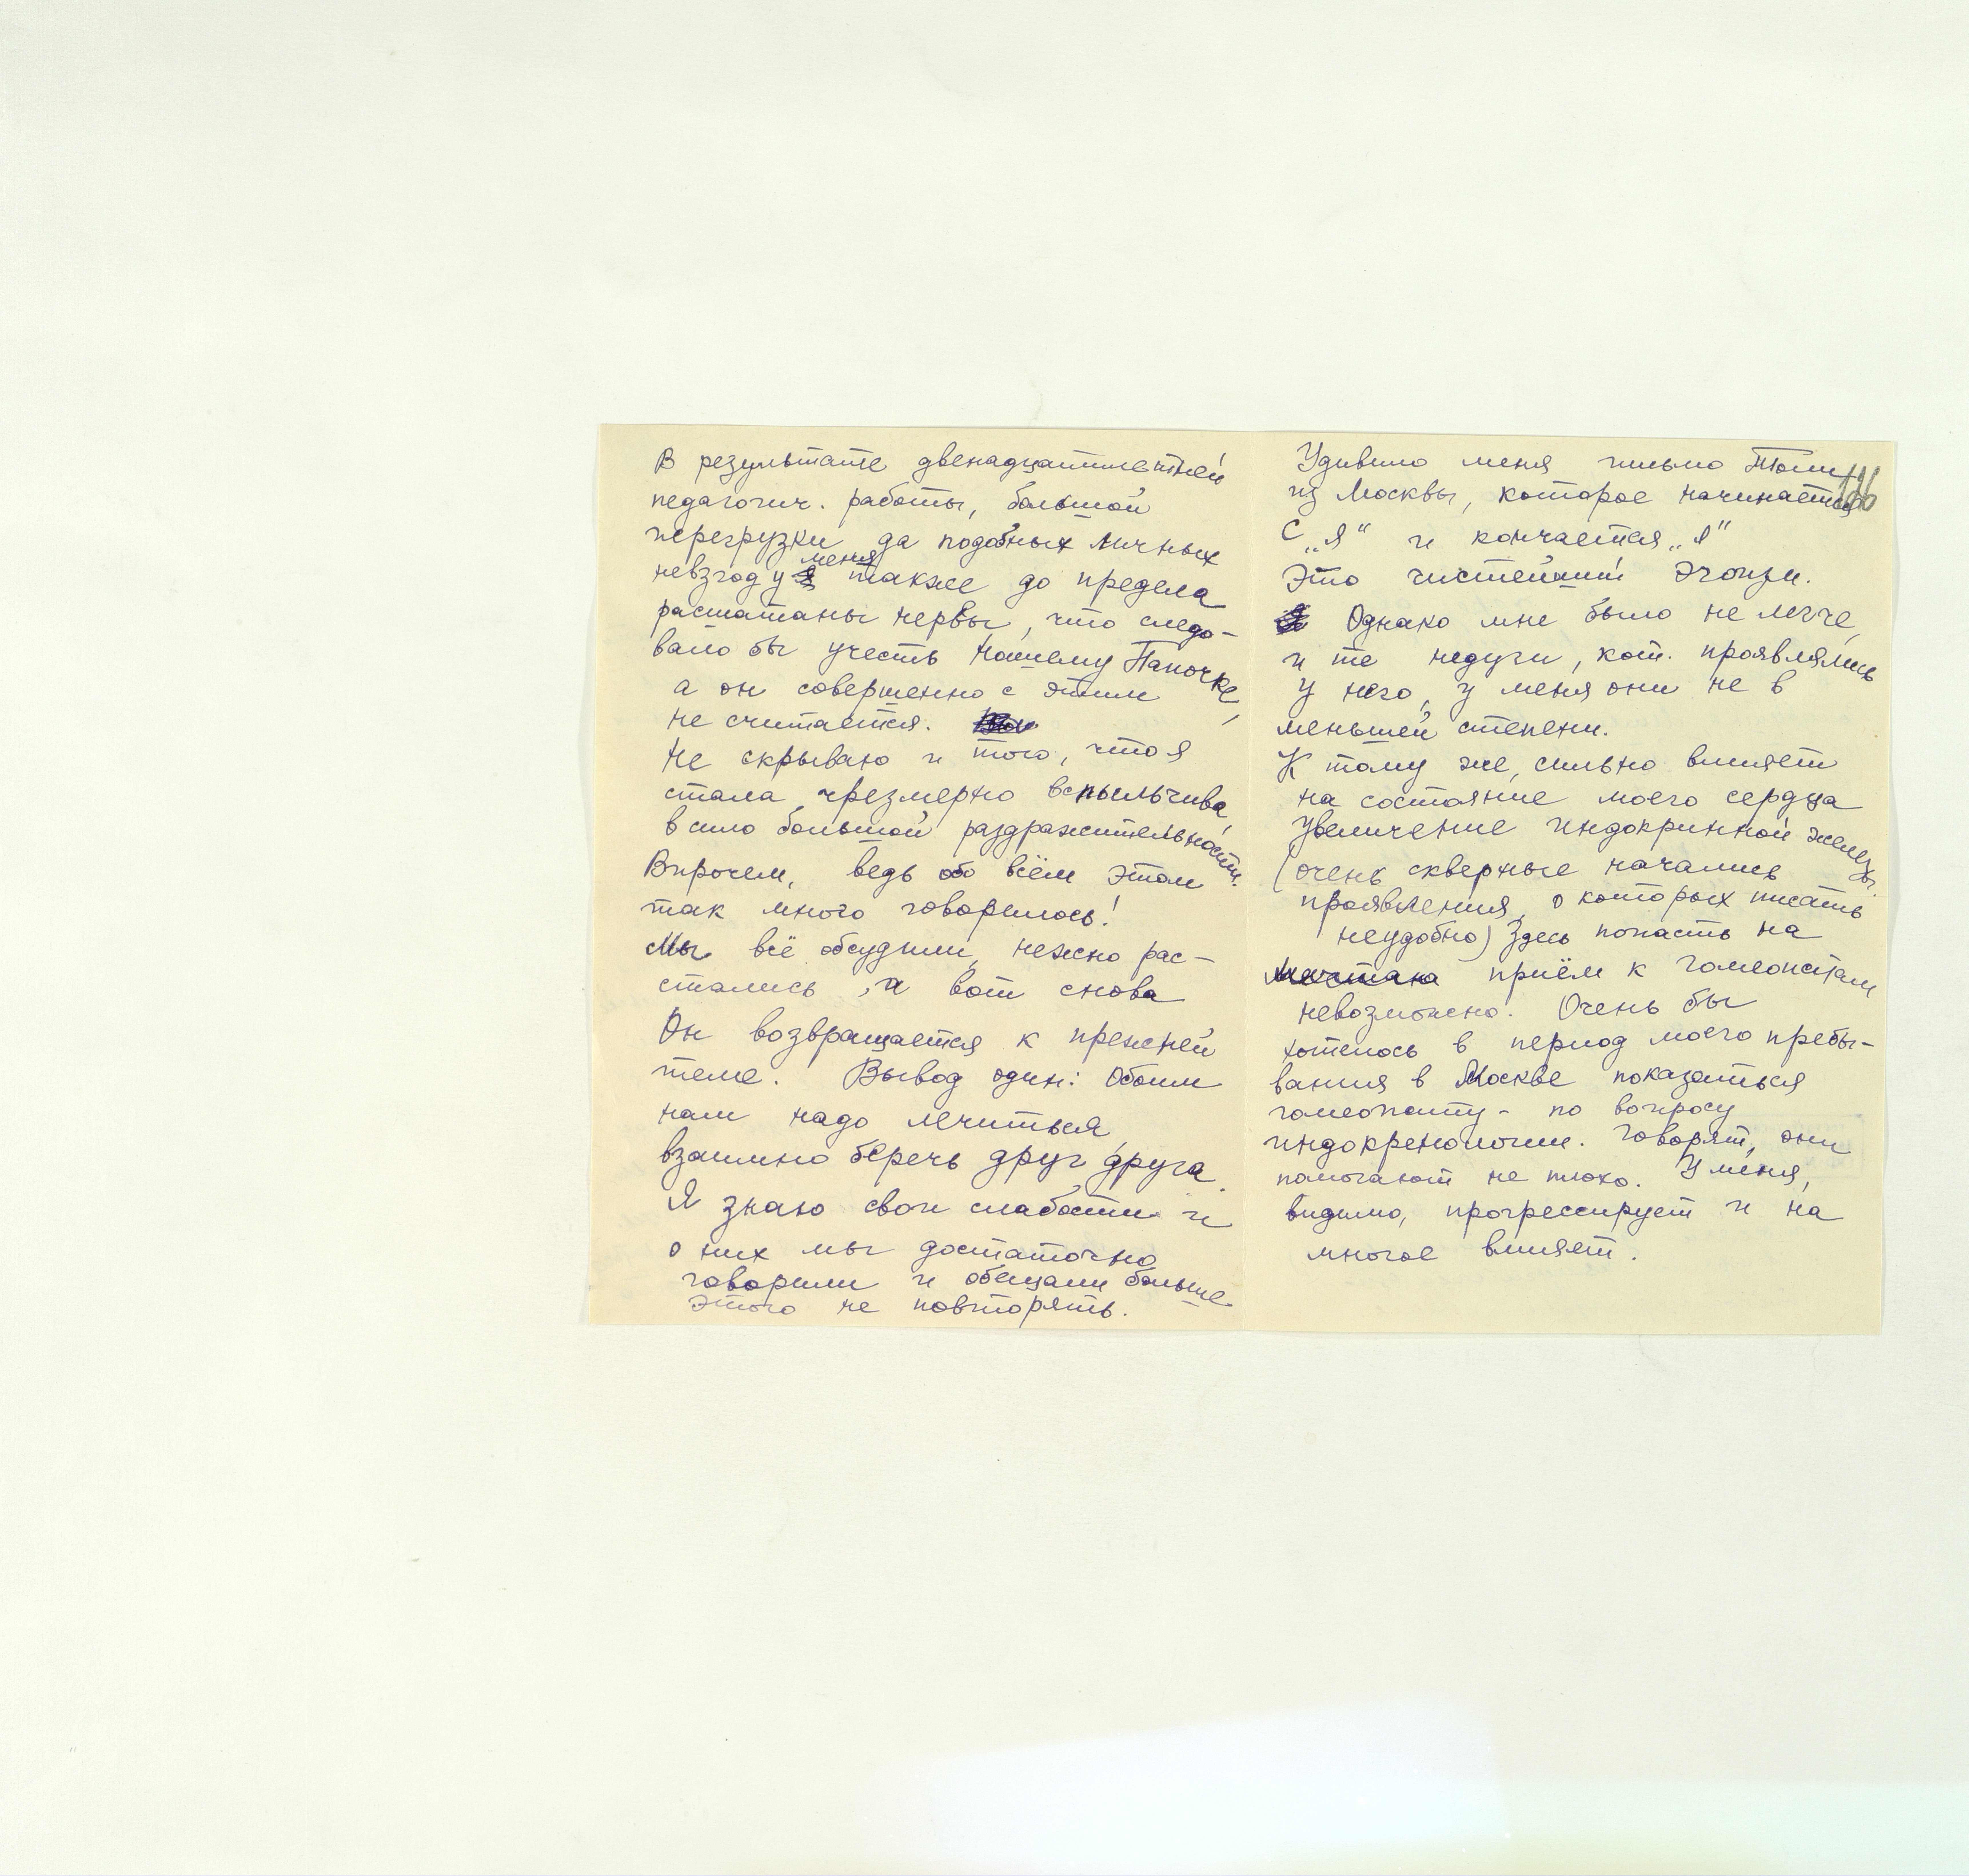 В результате двенадцатилетней
педагогич. работы, большой
перегрузки да подобных личных
невзгод у меня также до предела
расшатаны нервы, что следо-
вало бы учесть Нашему Папочке,
а он совершенно с этим
не считается.
Не скрываю и того, что я
стала чрезмерно вспыльчива,
в силу большой раздражительности.
Впрочем, ведь обо всём этом
так много говорилось!
Мы всё обсудили, нежно рас-
стались, а вот снова
Он возвращается к прежней
теме. Вывод один: Обоим
нам надо лечиться,
взаимно беречь друг друга.
Я знаю свои слабости и
о них мы достаточно
говорили и обещали больше
этого не повторять.
Удивило меня письмо Толи
из Москвы, которое начинается
с „Я" и кончается „Я"
Это чистейший эгоизм.
Однако мне было не легче,
и те недуги, кот. проявлялись
у него, у меня они не в
меньшей степени.
К тому же, сильно влияет
на состояние моего сердца
увеличение индокринной железы.
(очень скверные начались
проявления, о которых писать
неудобно) Здесь попасть на
приём к гомеопатам
невозможно. Очень бы
хотелось в период моего пребы-
вания в Москве показаться
гомеопату - по вопросу
индокренологии. Говорят, они
помогают не плохо. У меня,
видимо, прогрессирует и на
многое влияет.